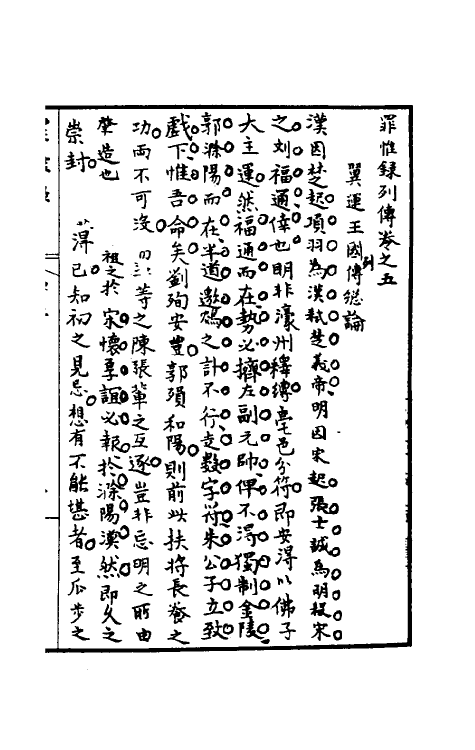 罪惟録列傳卷之五
翼運王國列傳總論
漢因楚起項羽為漢弑楚義帝明因宋起張士誠為明殺宋
之刘福通倖也明非濠州釋縛亳邑分符即安得以佛子
大主運然福通而在勢必擠左副元帥俾不得獨制金陵
郭滁陽而在半道邀鴆之計不行走数字符朱公子立致
戲下惟吾命矣劉殉安豊郭殞和陽則前此扶將長養之
功而不可没等之陳張輩之互逐豈非忘明之所由
肇造也祖之於宋懷享誼必報於滁陽漠然即久之
崇封已知初之見忌想有不能堪者至瓜步之